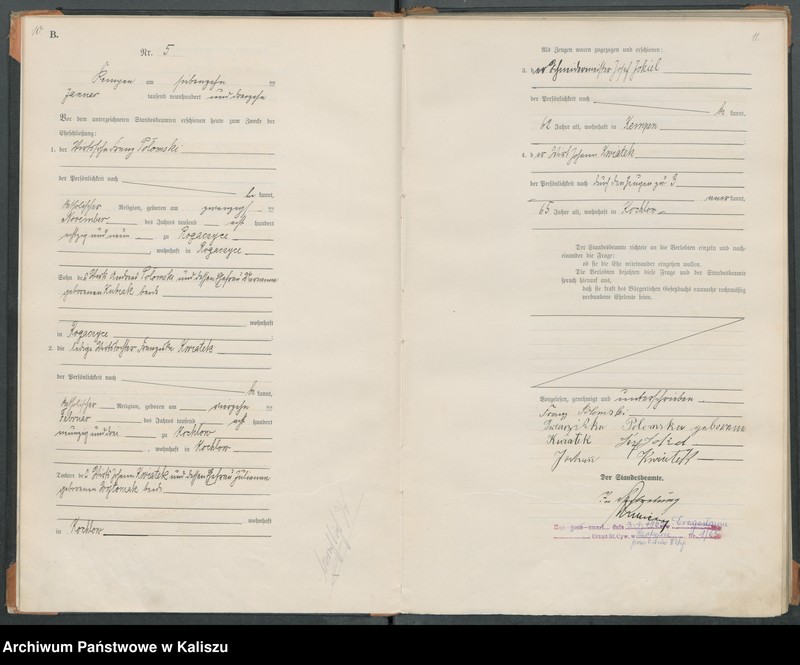 10
B.
Nr. 5
Kempen am siebenzehn ten
Januar tausend neunhundert und dreizehn
Vor dem unterzeichneten Standesbeamten erschienen heute zum Zwecke der
Eheschließung:
1. der Wirtssohn Franz Polomski
der Persönlichkeit nach
be kannt,
katholischer Religion, geboren am zwanzigsten
November des Jahres tausend acht hundert
achtzig und neun zu Rogaszyce
, wohnhaft in Rogaszyce
Sohn des Wirts Andreas Polomski und dessen Ehefrau Marianna
geborenen Kubiak beide
wohnhaft
in Rogaszyce
2. die ledige Wirtstochter Franziska Kwiatek
der Persönlichkeit nach
be kannt,
katholischer Religion, geboren am vierzehn ten
Februar des Jahres tausend acht hundert
neunzig und drei zu Kochlow
, wohnhaft in Kochlow
Tochter des Wirts Johann Kwiatek und dessen Ehefrau Julianna
geborenen beide
wohnhaft
in Kochlow
11
Als Zeugen waren zugezogen und erschienen:
3. der Schneidermeister Josef Jokiel
der Persönlichkeit nach
be kannt,
62 Jahre alt, wohnhaft in Kempen
4. der Wirt Johann Kwiatek
der Persönlichkeit nach durch den Zeugen zu 3
anerkannt,
65 Jahre alt, wohnhaft in Kochlow
Der Standesbeamte richtete an die Verlobten einzeln und nach-
einander die Frage:
ob sie die Ehe miteinander eingehen wollen.
Die Verlobten bejahten diese Frage und der Standesbeamte
sprach hierauf aus,
daß sie kraft des Bürgerlichen Gesetzbuchs nunmehr rechtmäßig
verbundene Eheleute seien.
Vorgelesen, genehmigt und unterschrieben
Franz Polomski
Franziska Polomska geborene
Kwiatek Josef Jokiel
Johann Kwiatek
Der Standesbeamte.
In Vertretung
Archiwum Państwowe w Kaliszu